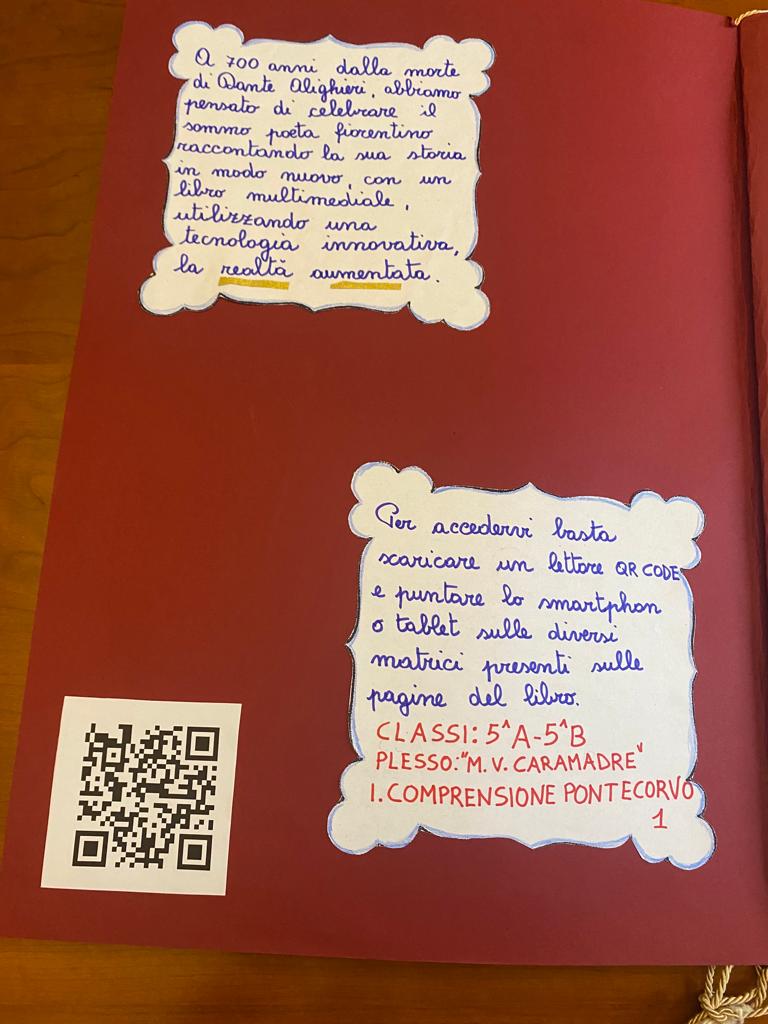 A 700 anni dalla morte
di Dante Alighieri, abbiamo
pensato di celebrare il
sommo poeta fiorentino
raccontando la sua storia
in modo nuovo, con un
libro multimediale,
utilizzando una
tecnologia innovativa,
la realtà aumentata.
Per accedervi basta
scaricare un lettore QR CODE
e puntare lo smartphon
o tablet sulle diversi
matrici presenti sulle
pagine del libro.
CLASSI: 5^A-5^B
PLESSO: "M. V. CARAMADRE"
I. COMPRENSIONE PONTECORVO
1